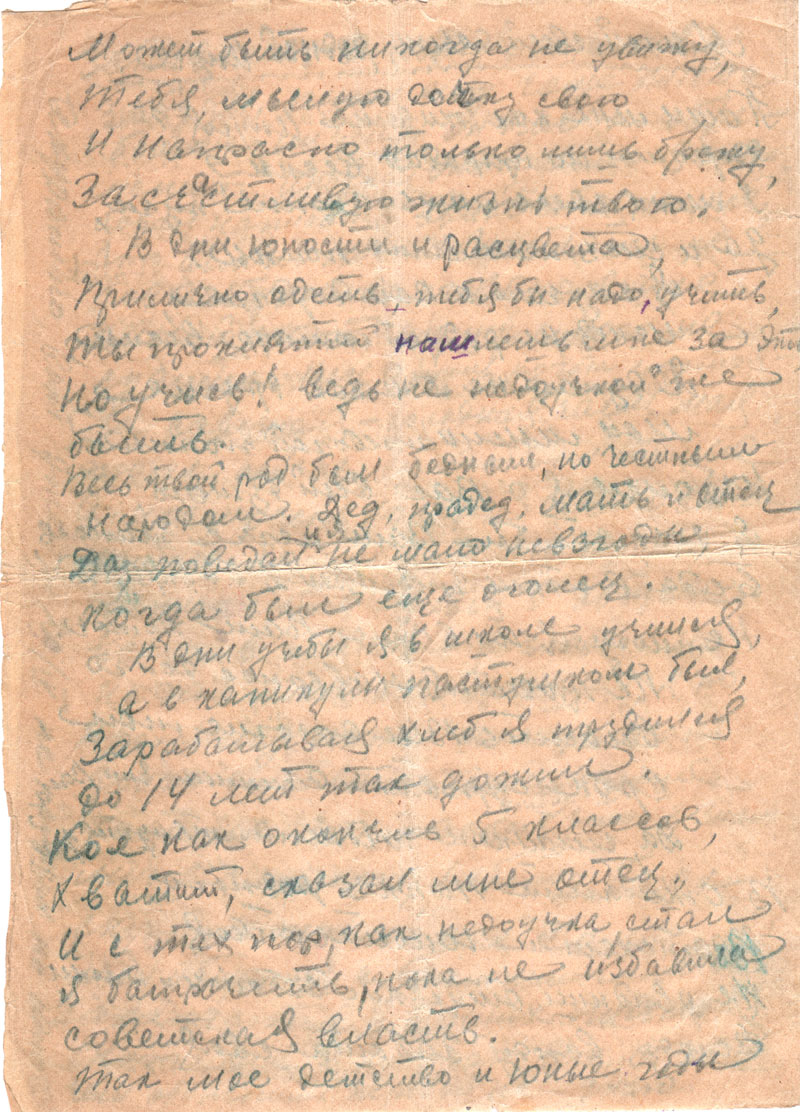 Может быть никогда не увижу,
Тебя, милую дочку свою
И напрасно только лишь брожу,
За счастливую жизнь твою.
В дни юности и расцвета,
Прилично одеть, тебя бы надо, учить,
Ты проклятий нашлешь мне за это
Но учись! ведь не недоучкой же
быть.
Весь твой род был бедным, но честным
народом. Дед, прадед, мать и отец
Да, поведал не мало невзгоды,
когда был еще оголец.
В дни учебы я в школе учился,
а в каникулы пастушком был,
Зарабатывая хлеб я трудился
до 14 лет так дожил.
Кое как окончив 5 классов,
Хватит, сказал мне отец,
И с тех пор, как недоучка, стал
я батрачить, пока не избавила
советская власть.
Так мое детство и юные годы